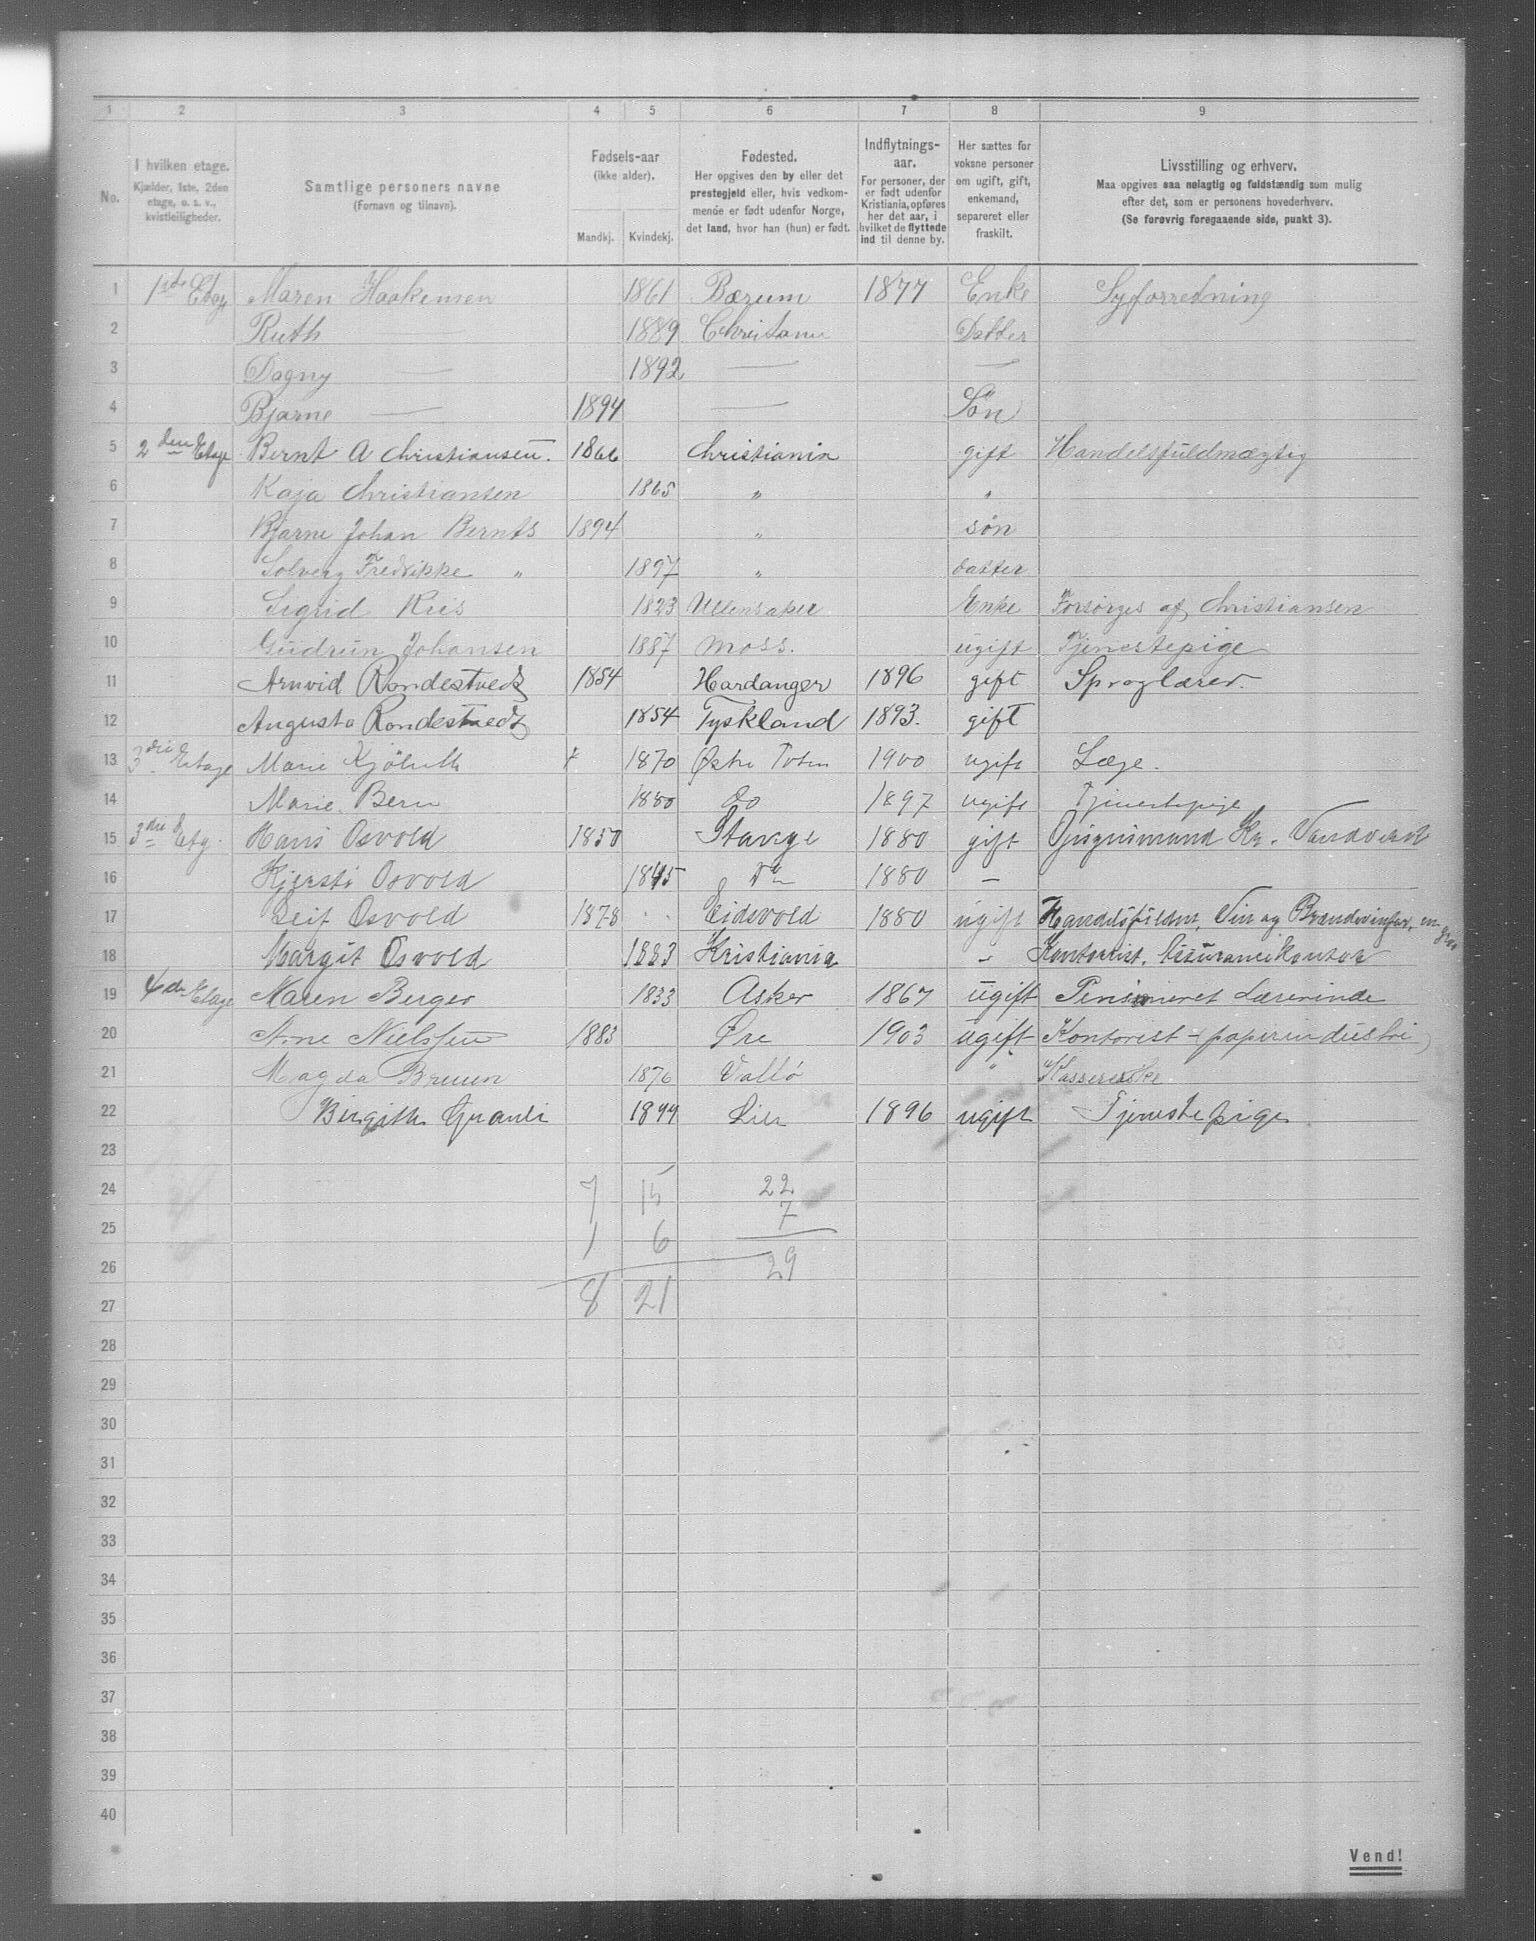 1 2 3 4 5 6 7 8 9
No.
I hvilken etage.
Kjælder, 1ste, 2den
etage, o. s. v.,
kvistleiligheder.
Samtlige personers navne
(Fornavn og tilnavn).
Fødsels-aar
(ikke alder).
Mandkj. Kvindekj.
Fødested.
Her opgives den by eller det
prestegjeld eller, hvis vedkom-
mende er født udenfor Norge,
det land, hvor han (hun) er født.
Indflytnings-
aar.
For personer, der
er født udenfor
Kristiania, opføres
her det aar, i
hvilket de flyttede
ind til denne by.
Her sættes for
voksne personer
om ugift, gift,
enkemand,
separeret eller
fraskilt.
Livsstilling og erhverv.
Maa opgives saa nøiagtig og fuldstændig som mulig
efter det, som er personens hovederhverv.
(Se forøvrig foregaaende side, punkt 3).
1 1ste Etage Maren Haakensen 1861 Bærum 1877 Enke Syforretning
2 Ruth — 1889 Datter
3 Dagny — 1892 — —
4 Bjarne — 1894 — Søn
5 2den Etage Bernt A Christiansen. 1866 Christiania gift Handelsfuldmægtig
6 Kaja Christiansen 1865 " "
7 Bjarne Johan Bernts 1894 " søn
8 Solveig Fredrikke " 1897 " datter
9 Sigrid Riis 1823 Ullensaker Enke Forsørges af Christiansen
10 Gudrun Johansen 1887 Moss. ugift Tjenestepige
11 Arnvid 1854 Hardanger 1896 gift Sproglærer.
12 Augusta 1854 Tyskland 1893. gift
13 3die Etage Marie 1870 Østre Toten 1900 ugift Læge.
14 Marie Bern 1880 Do 1897 ugift Tjenestepige
15 3die Etg. Hans Osvold 1850 Stange 1880 gift Kr. Vandværk
16 Kjersti Osvold 1845 Do 1880 —
17 Leif Osvold 1878 Eidsvold 1880 ugift Vin og
18 Margit Osvold 1883 Kristiania - Kontorist, Assurancekontor
19 4de Etage Maren Berger 1833 Asker 1867 ugift Pensioneret Lærerinde
20 Arne Nielssen 1883 Øre 1903 ugift Kontorist - papirindustri
21 Magda Bruun 1876 Vallø " Kassererske
22 Birgitte 18 Lier 1896 ugift Tjenestepige
23
24 7 15 22
25 1 6 7
26 29
27 8 21
28
29
30
31
32
33
34
35
36
37
38
39
40
Vend!